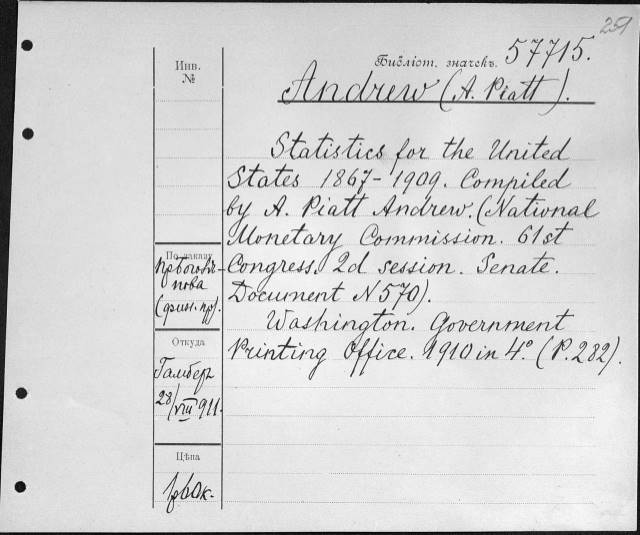 259
Инв.
№
Библіот. значекъ. 57715.
Andrew (A. Piatt).
Statistics for the United
States 1867-1909. Compiled
by A. Piatt Andrew. (National
Monetary Commission. 61st
Congress. 2d session. Senate.
Document N 570).
Washington. Government
Printing Office. 1910 in 4.° (P. 282).
По заказу
нова
Откуда
28/VIII 911.
Цѣна